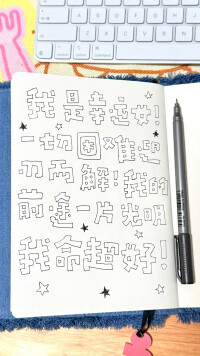 我是幸运女!
一切困难迎
刃而解!我的
前途一片光明
我命超好!